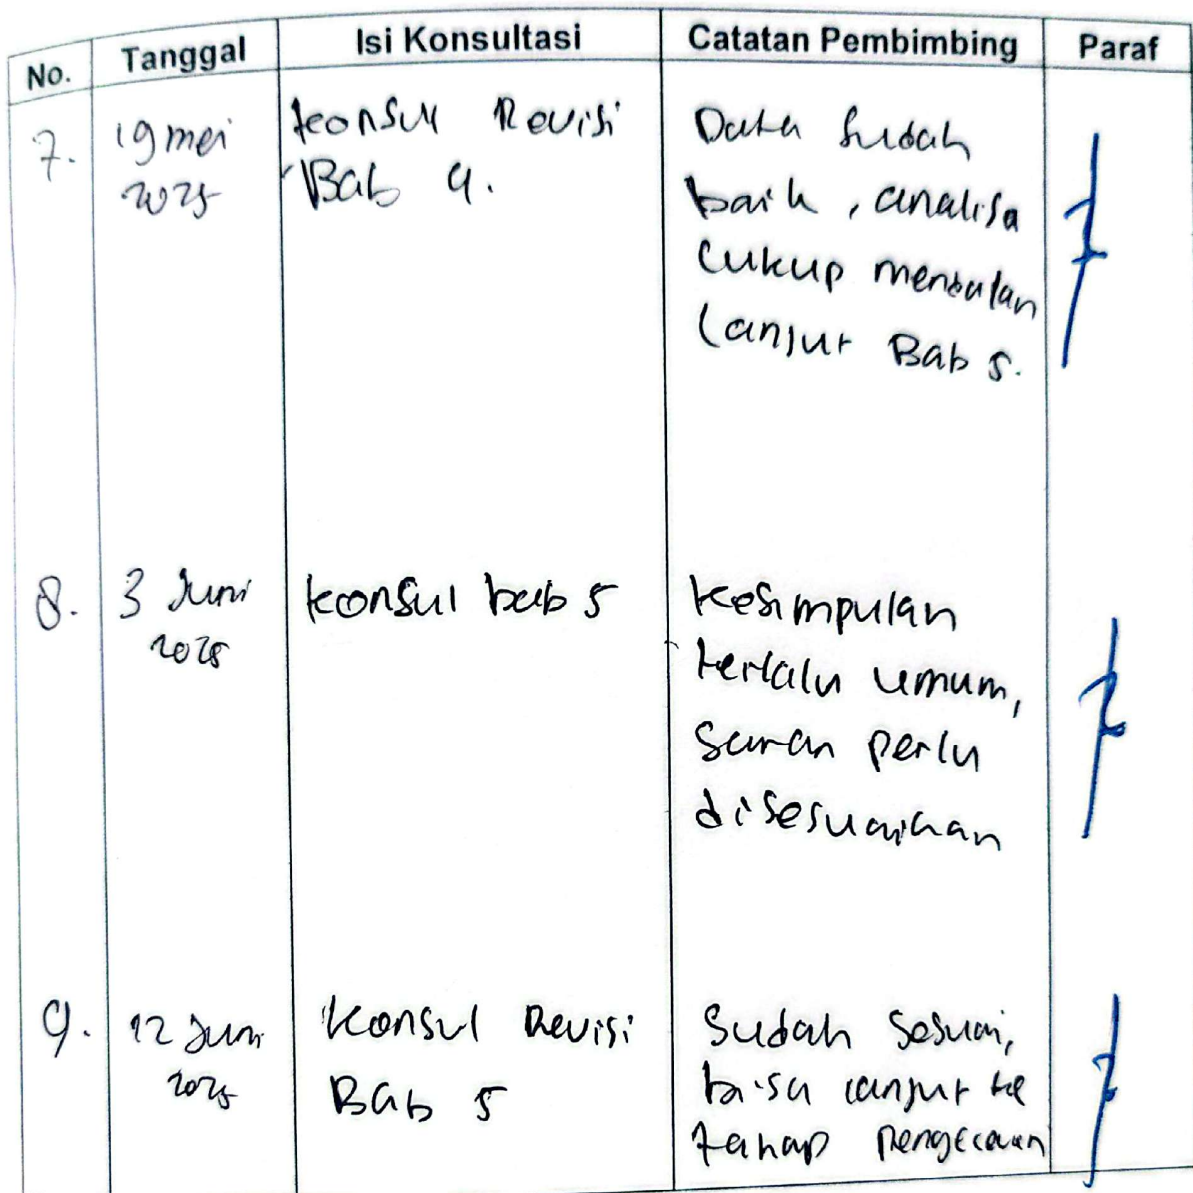 No. Tanggal Isi Konsultasi Catatan Pembimbing Paraf
7. 19 mei konsul Revisi Data sudah
2025 Bab 4. baik, analisa
cukup mendalam
lanjut Bab 5.
8. 3 Juni konsul bab 5 kesimpulan
2025 terlalu umum,
saran perlu
disesuaikan
9. 12 Juni konsul Revisi Sudah sesuai,
2025 Bab 5 bisa lanjut ke
tahap pengecekan